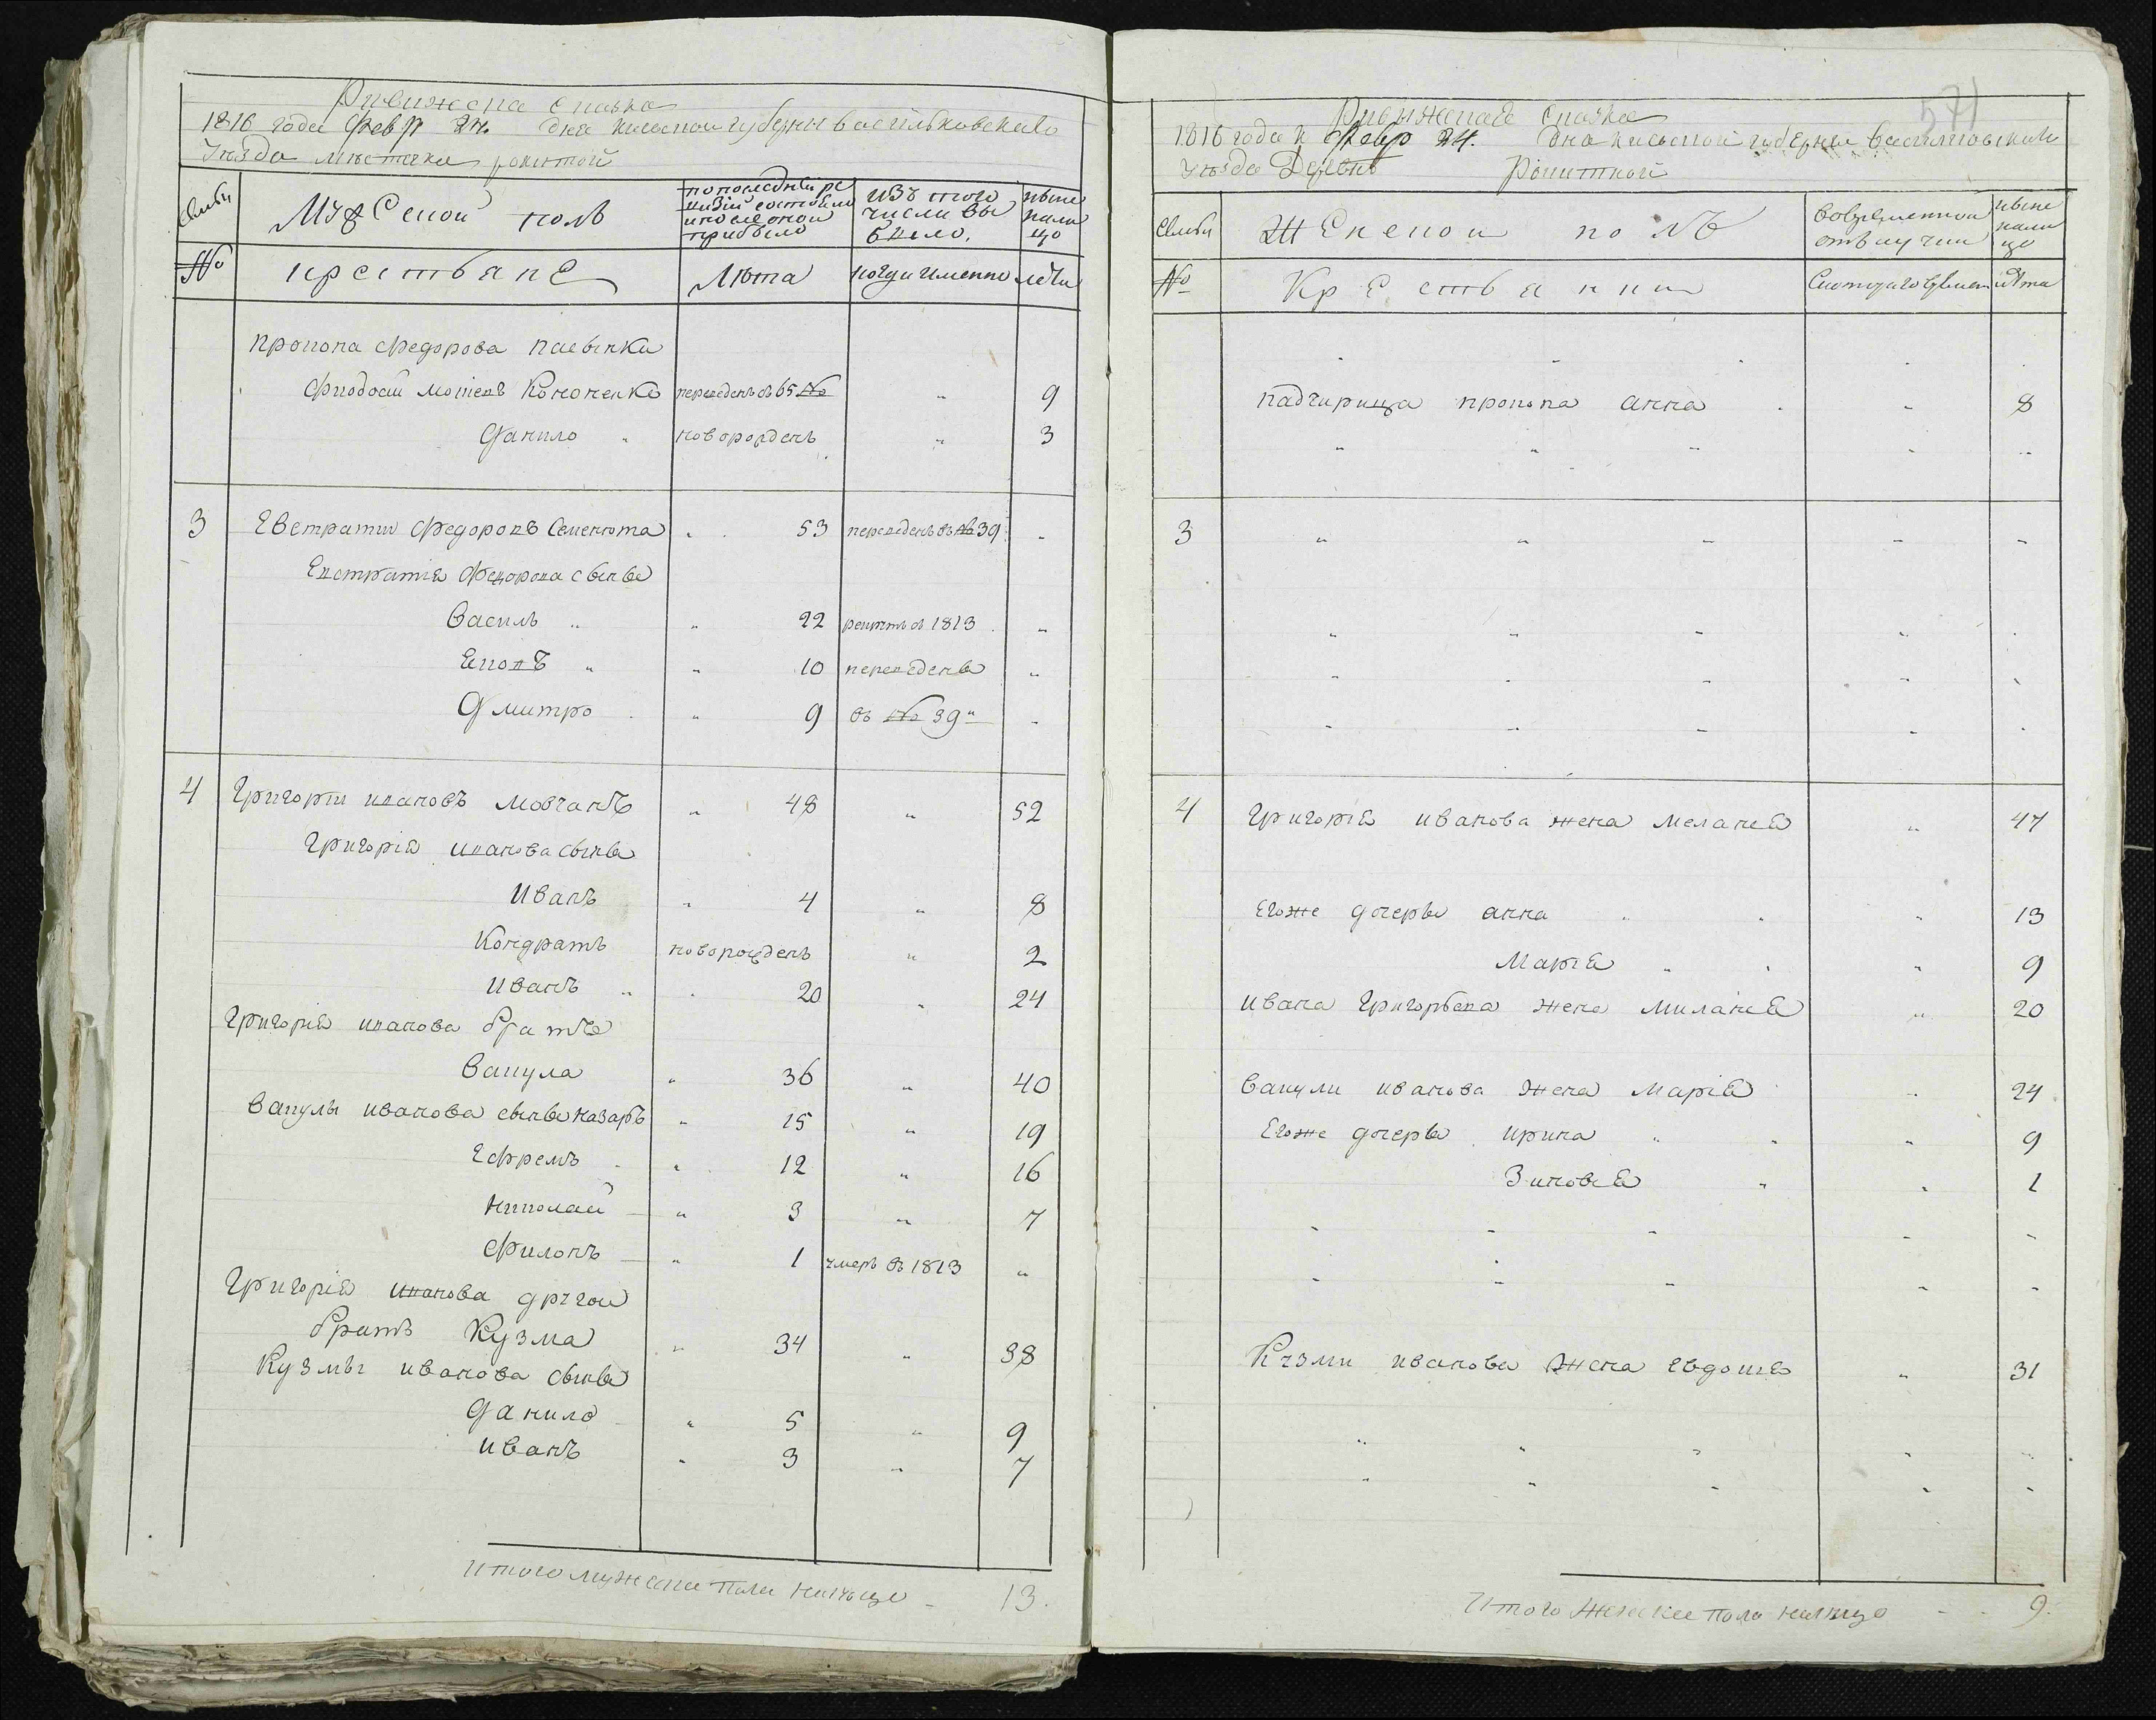 Ривижская сказка
1816 года Февр 24. дня киевской губернии васильковскаго
уезда местечка рокитной
семьи
Мужеской полъ
по последней ревизии состояло и после оной прибыло
изъ того числа выбыло.
ныне налицо
№
крестьяне
Лета
когда именно
лета
прокопа федорова пасынки
Фиодосий мотвеевъ Кононенко переведенъ съ 65 № " 9
Данило " новорожденъ " 3
3 Евстратий Федоровъ Семенюта " 53 переведенъ въ № 39 "
Евстратия Федорова сыны
Василь " " 22 рекрутъ въ 1813 "
Яковъ " " 10 переведены "
Дмитро " 9 въ № 39 " "
4 Григорий ивановъ Мовчанъ " 48 " 52
Григория иванова сыны
Иванъ " 4 " 8
Кондратъ новорожденъ " 2
Иванъ " " 20 " 24
Григория иванова братъ
Вакула " 36 " 40
Вакулы иванова сыны назаръ " 15 " 19
Ефремъ " 12 " 16
Николай " 3 " 7
Филонъ " 1 умеръ въ 1813 "
Григория иванова другой
братъ Кузма " 34 " 38
Кузмы иванова сыны
Данило " 5 " 9
иванъ " 3 " 7
Итого мужеска пола налицо - 13.
571
Ривижская сказка
1816 года Февр 24. дня киевской губернии васильковский
уезда Деревне Рокитной
семьи
Женской полъ
во временной отлучки
ныне налицо
№
Крестьянки
Скоторого времени
лета
падчирица прокопа анна " 8
3 " " " " "
4 Григория иванова жена мелания " 47
Егоже дочеры анна " 13
Мария " " 9
ивана Григорьева жена Милания " 20
Вакули иванова жена Мария " 24
Егоже дочеры ирина " " 9
Зиновия " " 1
Кузми иванова жена евдокия " 31
Итого женскее пола налицо - - 9.